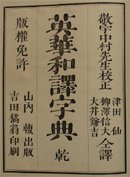 敬宇中村先生校正
津田仙
柳澤信大
大井鎌吉
仝譯
英華和譯字典
乾
山内 輹出版
版權免許
吉田 印刷